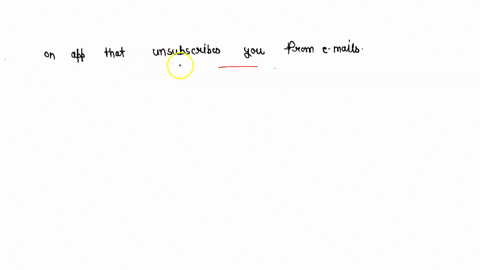 on app that unsubscribes you from e-mails.